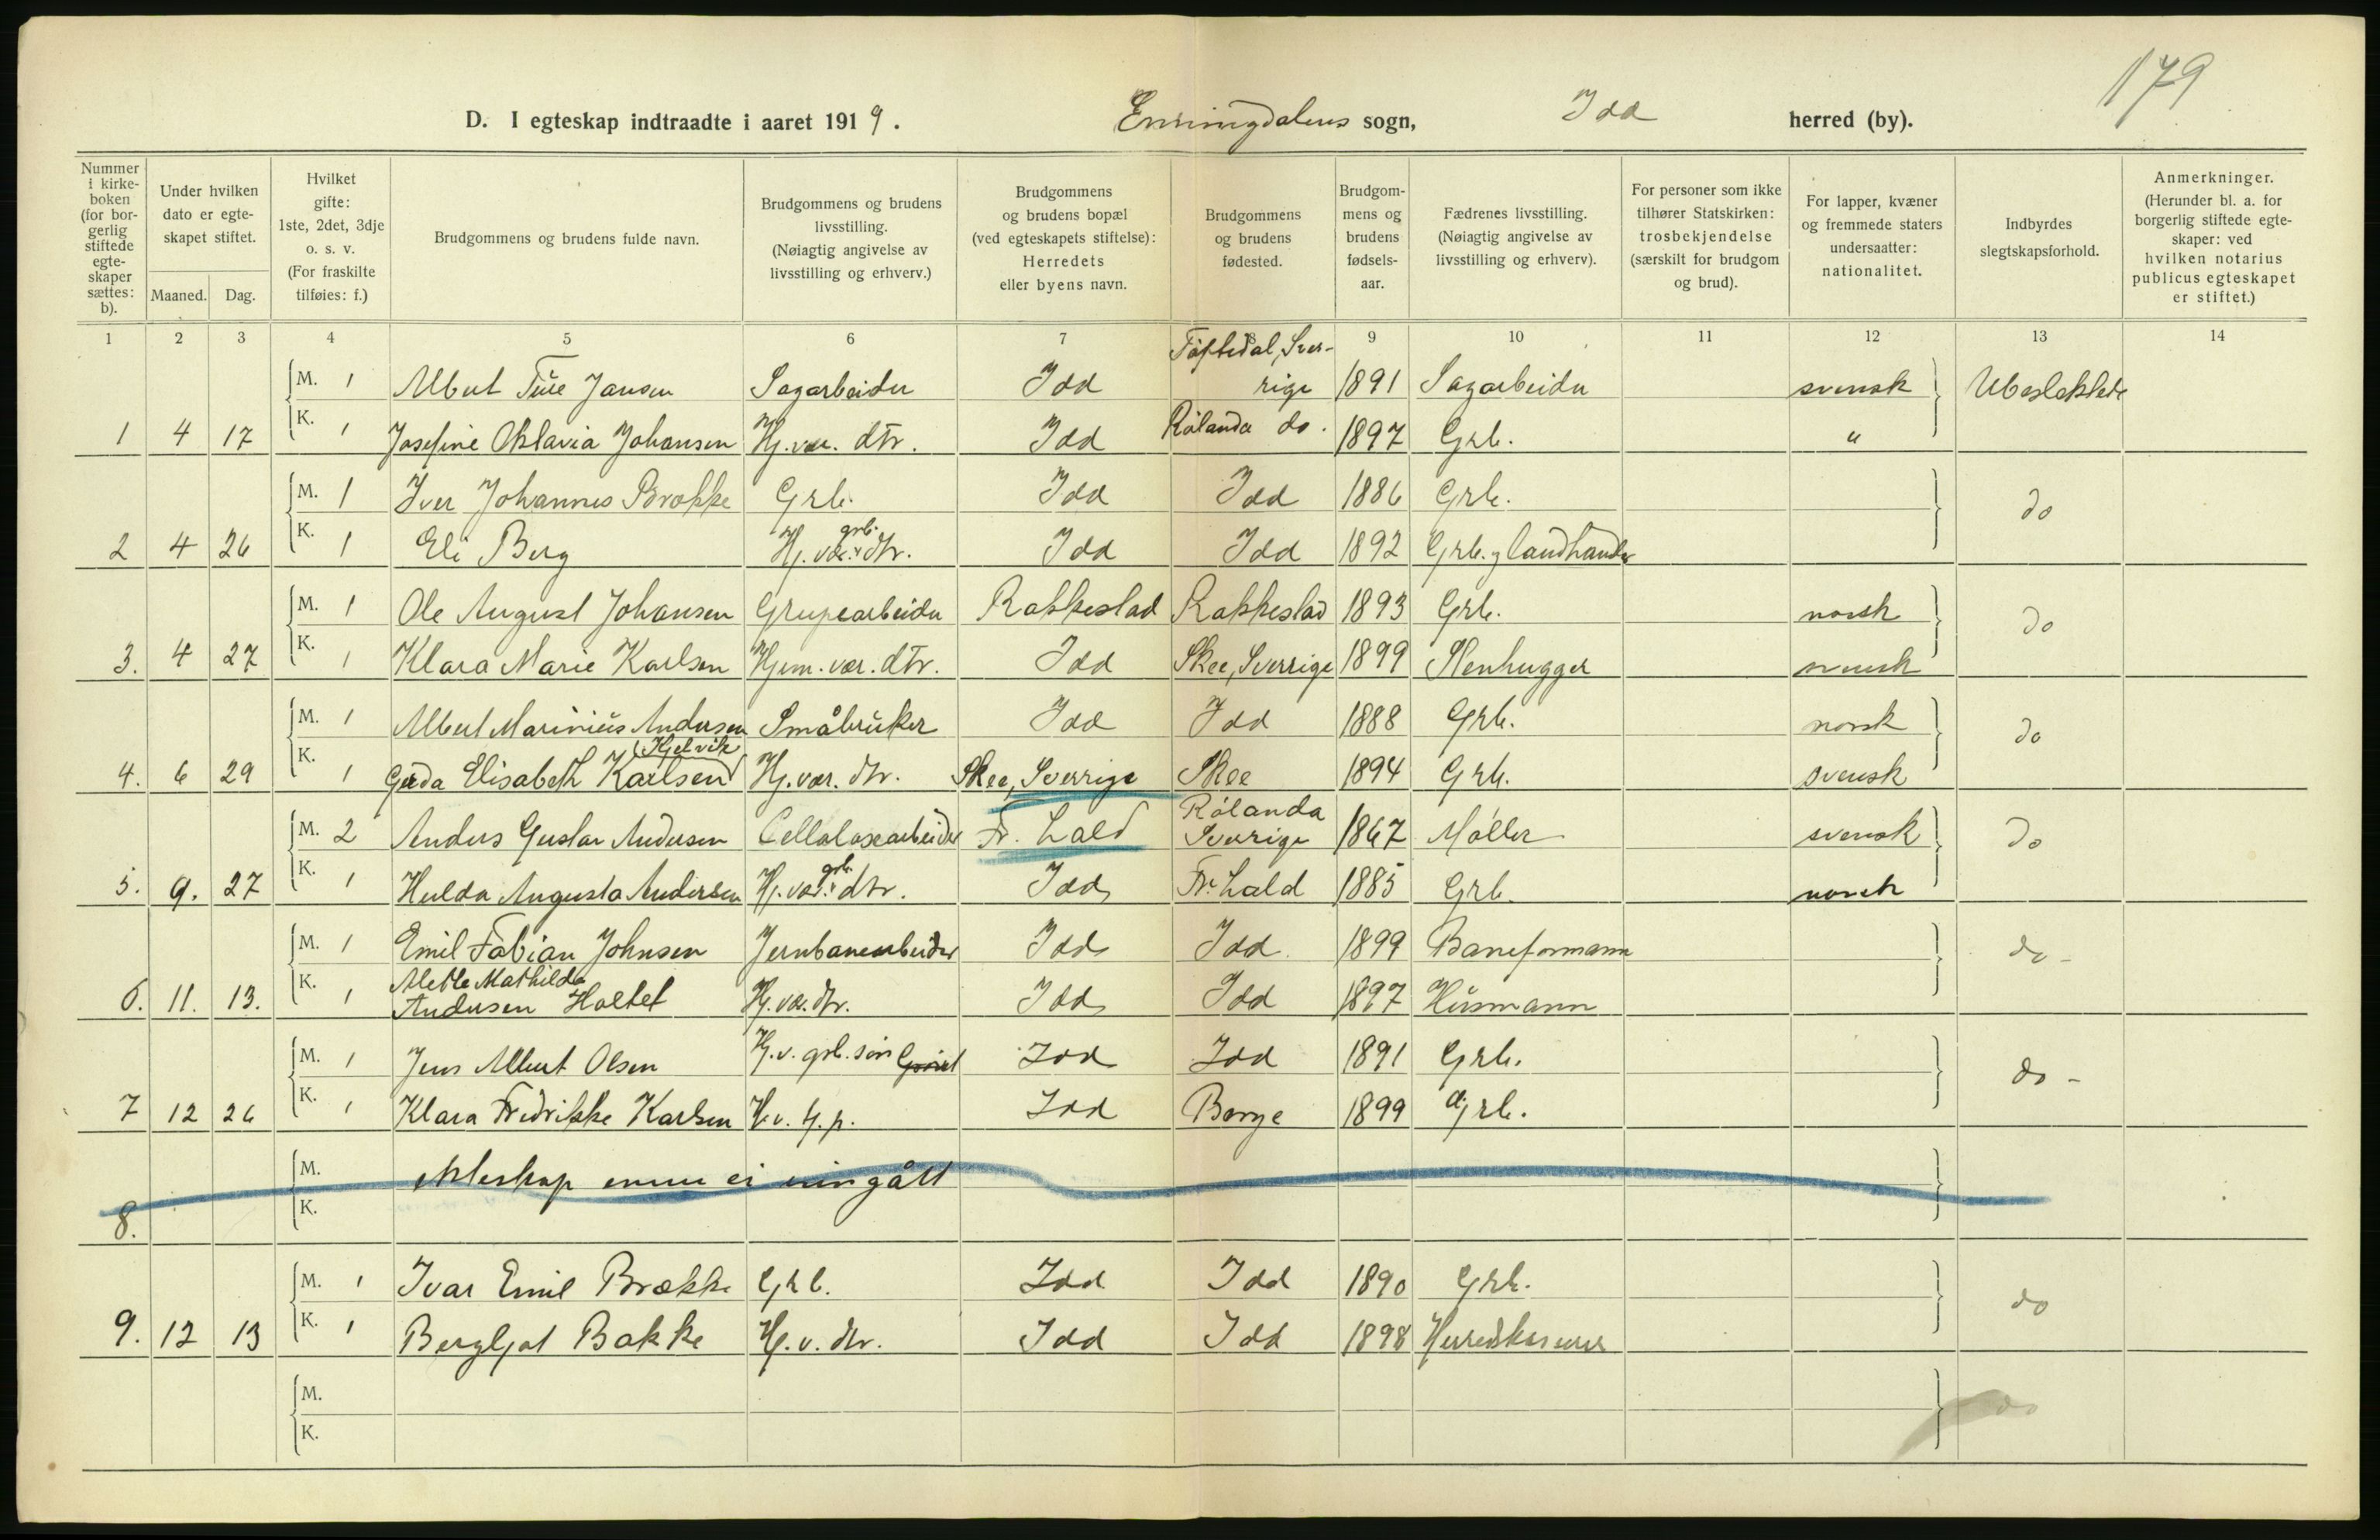 179
D. I egteskap indtraadte i aaret 1919. Enningdalens sogn, Idd herred (by).
Nummer i kirkeboken (for borgerlig stiftede egteskaper sættes: b).
Under hvilken dato er egteskapet stiftet.
Maaned. Dag.
Hvilket gifte: 1ste, 2det, 3dje o. s. v. (For fraskilte tilføies: f.)
Brudgommens og brudens fulde navn.
Brudgommens og brudens livsstilling. (Nøiagtig angivelse av livsstilling og erhverv.)
Brudgommens og brudens bopæl (ved egteskapets stiftelse): Herredets eller byens navn.
Brudgommens og brudens fødested.
Brudgommens og brudens fødselsaar.
Fædrenes livsstilling. (Nøiagtig angivelse av livsstilling og erhverv).
For personer som ikke tilhører Statskirken: trosbekjendelse (særskilt for brudgom og brud).
For lapper, kvæner og fremmede staters undersaatter: nationalitet.
Indbyrdes slegtskapsforhold.
Anmerkninger. (Herunder bl. a. for borgerlig stiftede egteskaper: ved hvilken notarius publicus egteskapet er stiftet.)
1 2 3 4 5 6 7 8 9 10 11 12 13 14
M. 1 Albert Ture Jansen Sagarbeider Idd Töftedal, Sverrige 1891 Sagarbeider svensk Ubeslektede
1 4 17 K. 1 Josefine Oktavia Johansen Hj. vær. dtr. Idd Rölanda do. 1897 Grb. "
M. 1 Iver Johannes Brække Grb. Idd Idd 1886 Grb. do
2 4 26 K. 1 Eli Berg Hj. vær. grb. dtr. Idd Idd 1892 Grb. og landhandler
M. 1 Ole August Johansen Grupearbeider Rakkestad Rakkestad 1893 Grb. norsk do
3. 4 27 K. 1 Klara Marie Karlsen Hjem. vær. dtr. Idd Skee, Sverrige 1899 Stenhugger svensk
M. 1 Albert Marinius Andersen Småbruker Idd Idd 1888 Grb. norsk do
4. 6 29 K. 1 Gerda Elisabeth Karlsen (Kjelvik) Hj. vær. dtr. Skee, Sverrige Skee 1894 Grb. svensk
M. 2 Anders Gustav Andersen Cellolosearbeider Fr. hald Rölanda Sverrige 1867 Møller svensk do
5. 9. 27 K. 1 Hulda Augusta Andersen Hj. vær. grb. dtr. Idd Fr. hald 1885 Grb. norsk
M. 1 Emil Fabian Johnsen Jernbanearbeider Idd Idd 1899 Baneformann do -
6. 11. 13. K. 1 Alette Mathilde Andersen Holtet Hj. vær. dtr. Idd Idd 1897 Husmann
M. 1 Jens Albert Olsen Hj. v. grb. søn Idd Idd 1891 Grb. do -
7 12 26 K. 1 Klara Fredrikke Karlsen H. v. hj. p. Idd Borge 1899 Grb.
8. M. K. ekteskap ennu ei inngått
M. 1 Ivar Emil Brække Grb. Idd Idd 1890 Grb. do
9. 12 13 K. 1 Bergljot Bakke Hj. v. dtr. Idd Idd 1898 Herredskasserer
M. do
K.